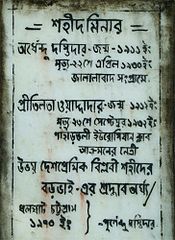 শহীদ মিনার
অর্ধেন্দু দস্তিদার - জন্ম - ১৯১১ ইং
মৃত্যু - ২২শে এপ্রিল ১৯৩০ ইং
জালালাবাদ সংগ্রামে
প্রীতিলতা ওয়াদ্দাদার - জন্ম ১৯১১ ইং
মৃত্যু - ২৩শে সেপ্টেম্বর ১৯৩২ ইং
পাহাড়তলী ইউরোপিয়ান ক্লাব
আক্রমনের নেত্রী
উভয় দেশপ্রেমিক বিপ্লবী শহীদের
বড়ভাই - এর শ্রদ্ধার অর্ঘ্য
ধলঘাট চট্টগ্রাম
১৯৭০ ইং
- পূর্ণেন্দু দস্তিদার